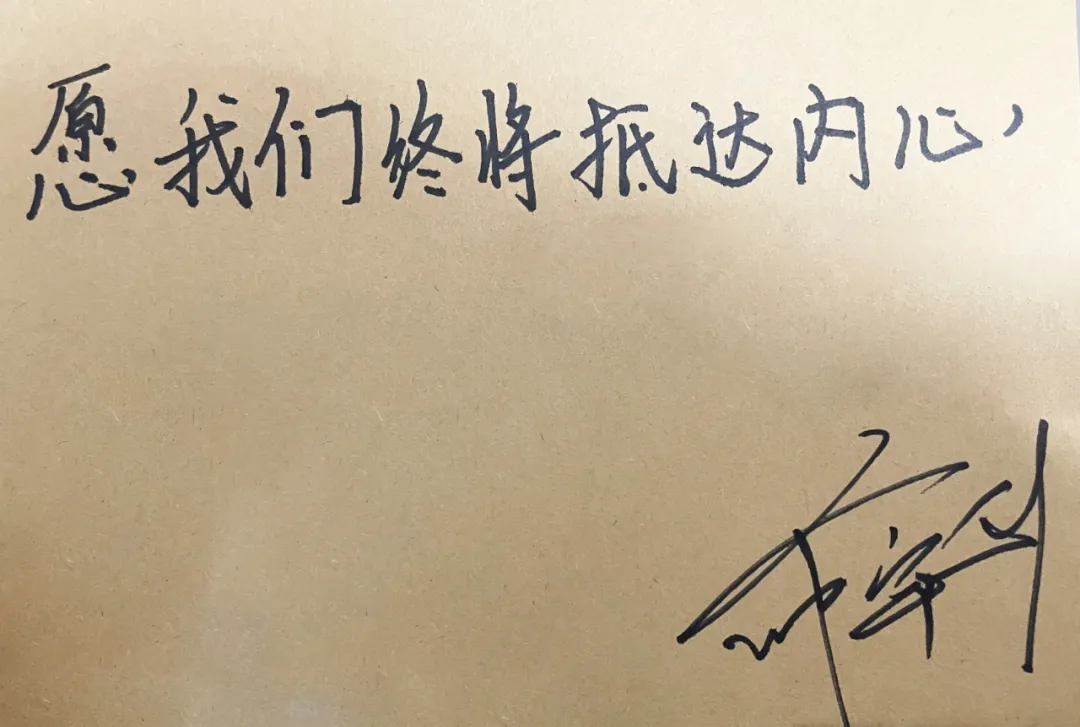 愿我们终将抵达内心,